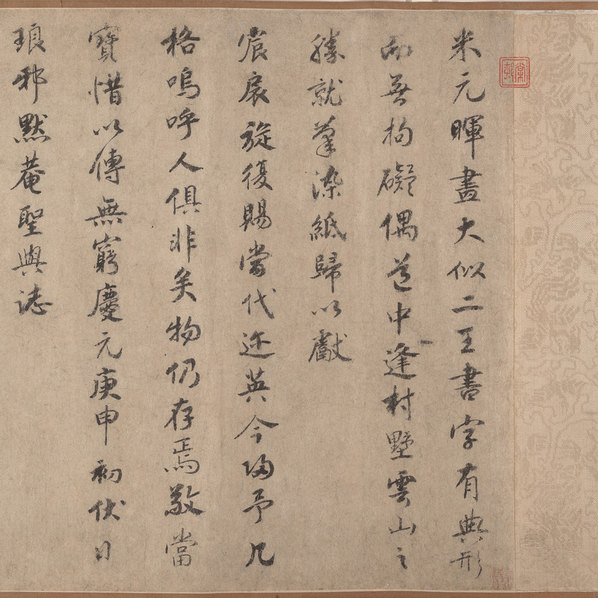 米元暉畫大似二王書字有典形
而無拘礙偶道中逢村墅雲山之
勝就筆染紙歸以獻
宸扆旋復賜當代近英今為予几
格嗚呼人俱非矣物仍存焉敬當
寶惜以傳無窮慶元庚申初伏日
琅邪默菴聖與誌